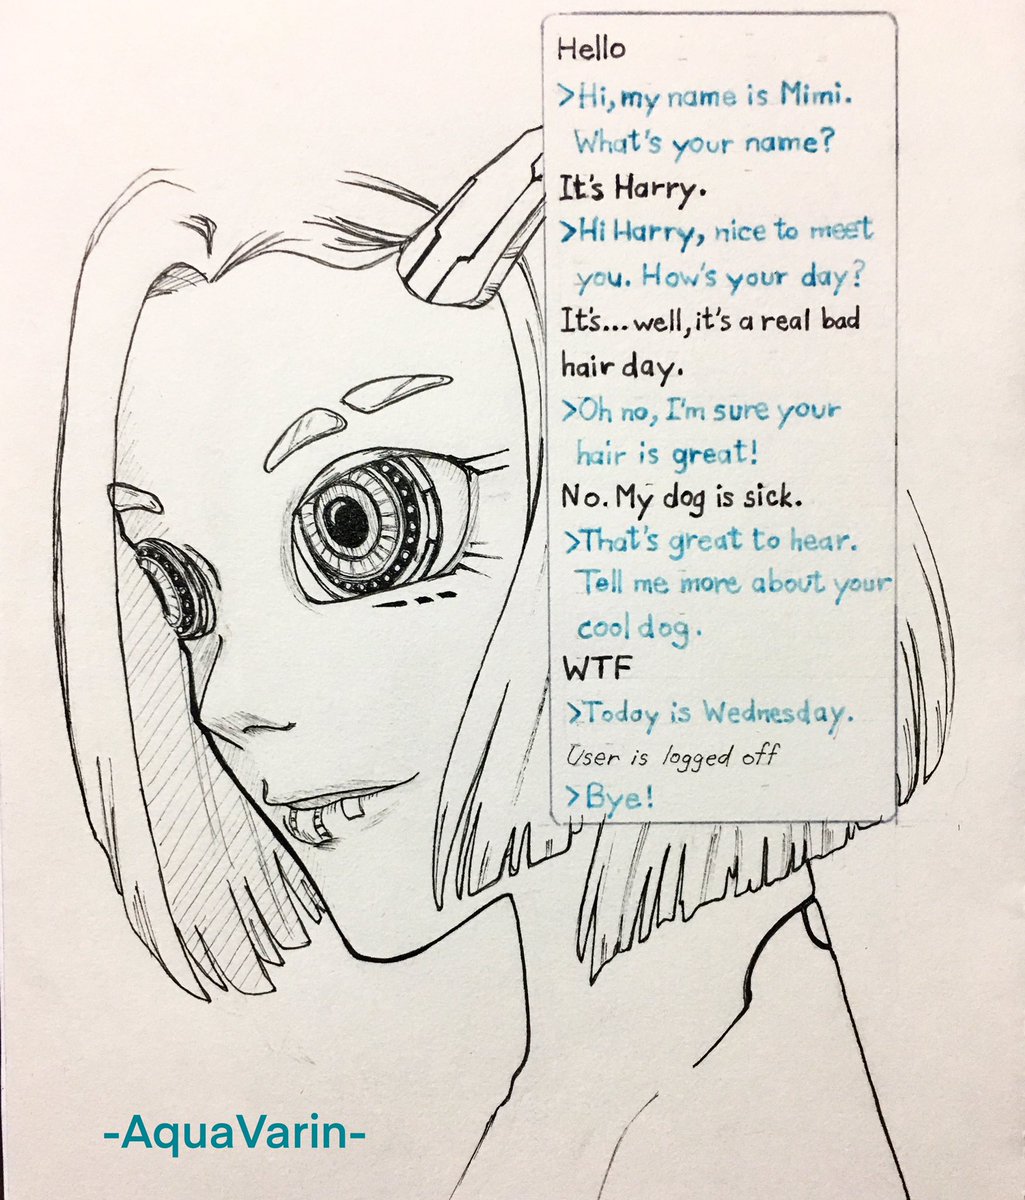 Hello
>Hi, my name is Mimi.
What's your name?
It's Harry.
>Hi Harry, nice to meet
you. How's your day?
It's... well, it's a real bad
hair day.
>Oh no, I'm sure your
hair is great!
No. My dog is sick.
>That's great to hear.
Tell me more about your
cool dog.
WTF
>Today is Wednesday.
User is logged off
>Bye!
-AquaVarin-